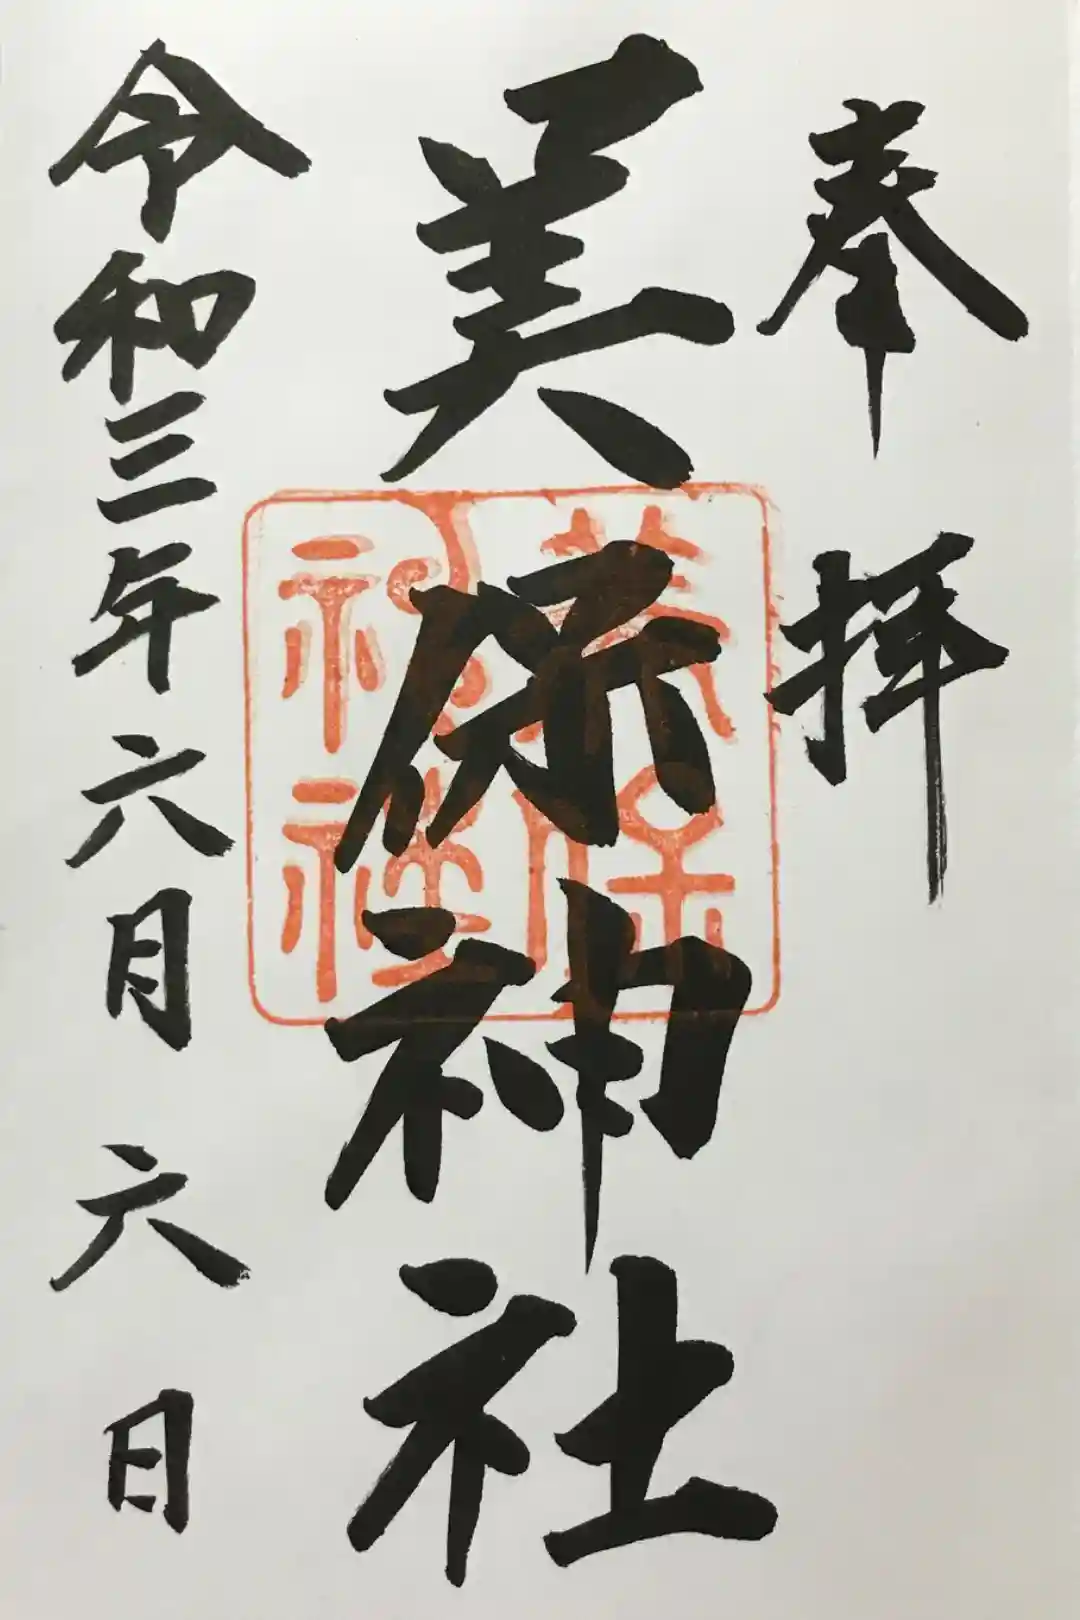 奉拝
美保神社
美保
神社
令和三年六月六日